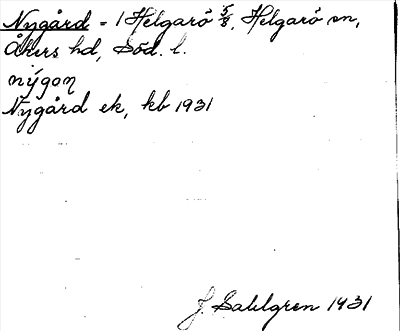 Nygård = 1 Helgarö 5/8, Helgarö sn,
Åkers hd, Söd. l.
nỳgoɳ
Nygård ek, kb 1931
J. Sahlgren 1931